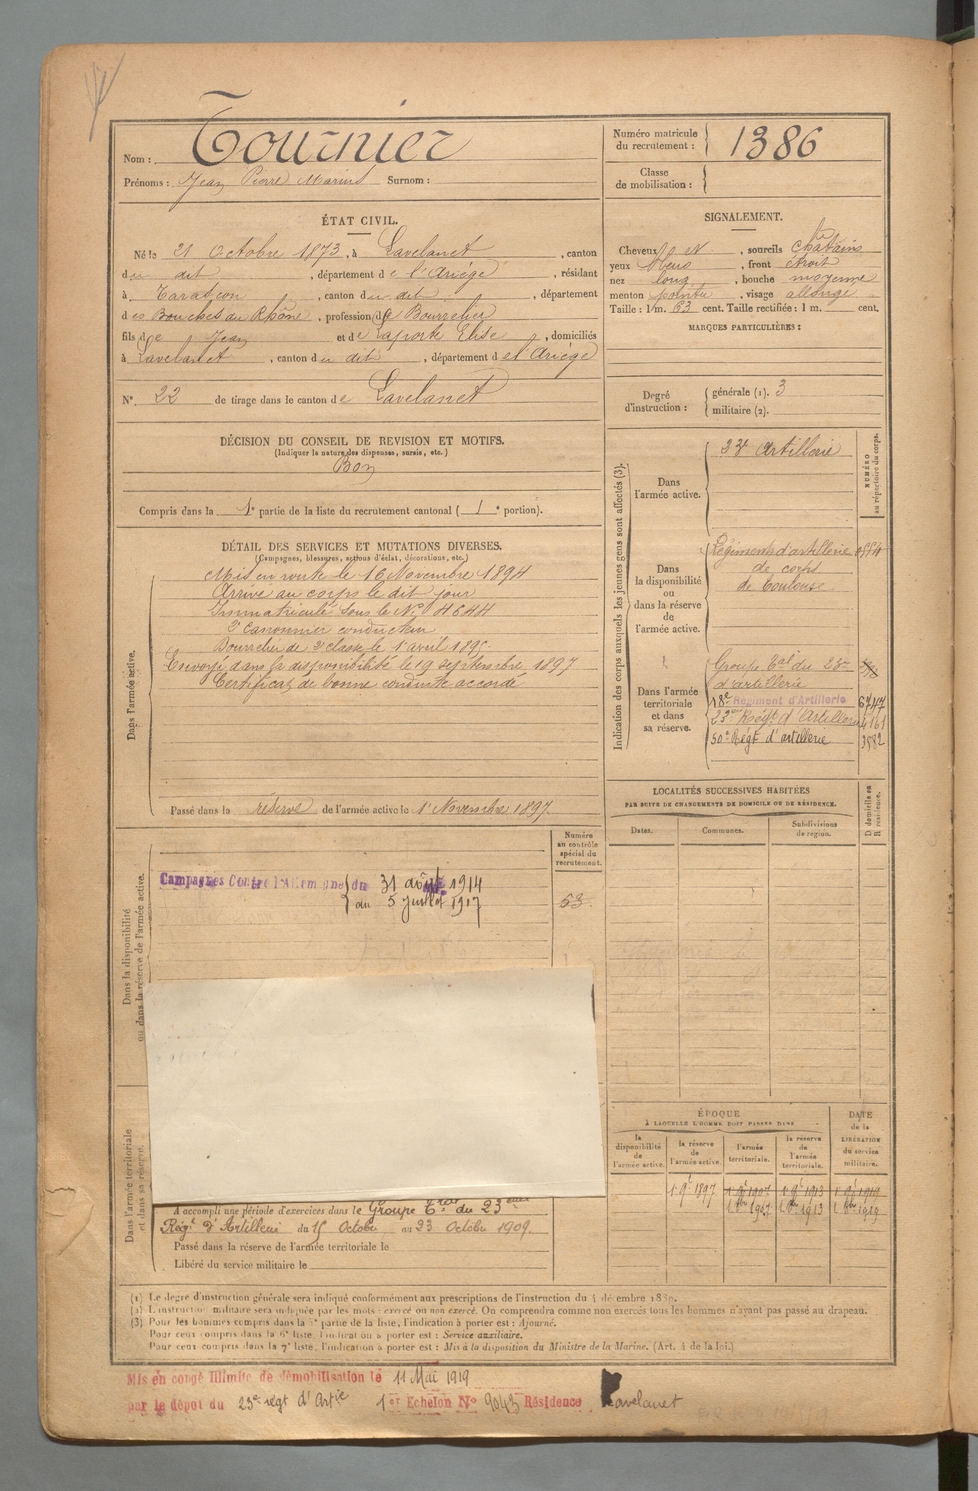 Nom : Tournier
Prénoms : Jean Pierre Marius Surnom :
Numéro matricule du recrutement : 1386
Classe de mobilisation :
ÉTAT CIVIL.
Né le 21 Octobre 1873, à Lavelanet, canton
du dit, département de l'Ariège, résidant
à Tarascon, canton du dit, département
des Bouches du Rhône, profession de Bourrelier
fils de Jean et de Laporte Elise, domiciliés
à Lavelanet, canton du dit, département de l'Ariège
N° 22 de tirage dans le canton de Lavelanet
SIGNALEMENT.
Cheveux et, sourcils châtains
yeux bleus, front étroit
nez long, bouche moyenne
menton pointu, visage allongé
Taille : 1 m. 63 cent. Taille rectifiée : 1 m. cent.
MARQUES PARTICULIÈRES :
Degré d'instruction :
générale (1). 3
militaire (2).
DÉCISION DU CONSEIL DE REVISION ET MOTIFS.
(Indiquer la nature des dispenses, sursis, etc.)
Bon
Compris dans la 1e partie de la liste du recrutement cantonal (1e portion).
DÉTAIL DES SERVICES ET MUTATIONS DIVERSES.
(Campagnes, blessures, actions d'éclat, décorations, etc.)
Dans l'armée active.
Mis en route le 16 Novembre 1894
Arrivé au corps le dit jour
Immatriculé sous le N° 4644
2e Canonnier conducteur
Bourrelier de 2e classe le 1er avril 1895
Envoyé dans la disponibilité le 19 septembre 1897
Certificat de bonne conduite accordé
Passé dans la réserve de l'armée active le 1er Novembre 1897.
Indication des corps auxquels les jeunes gens sont affectés (3).
NUMÉRO au répertoire du corps.
Dans l'armée active.
23e Artillerie
Dans la disponibilité ou dans la réserve de l'armée active.
Régiment d'artillerie
de corps
de Toulouse
Dans l'armée territoriale et dans sa réserve.
Groupe Tal du 23me
d'artillerie
18e Régiment d'Artillerie 6747
23me Régt d'Artillerie 4161
50e Régt d'artillerie 3982
LOCALITÉS SUCCESSIVES HABITÉES
PAR SUITE DE CHANGEMENTS DE DOMICILE OU DE RÉSIDENCE.
D domicile ou R résidence.
Dates. Communes. Subdivisions de région.
Numéro au contrôle spécial du recrutement.
Dans la disponibilité ou dans la réserve de l'armée active.
Campagnes Contre l'Allemagne du 31 août 1914
au 5 juillet 1917
53
ÉPOQUE
À LAQUELLE L'HOMME DOIT PASSER DANS
DATE de la LIBÉRATION du service militaire.
la disponibilité de l'armée active.
la réserve de l'armée active.
l'armée territoriale.
la réserve de l'armée territoriale.
1er 9e 1897 1er 9e 1907 1er 9e 1913 1er 9e 1919
Dans l'armée territoriale et dans sa réserve.
A accompli une période d'exercices dans le Groupe Tal du 23ème
Régt d'Artillerie du 15 Octobre au 23 Octobre 1909.
Passé dans la réserve de l'armée territoriale le
Libéré du service militaire le
(1) Le degré d'instruction générale sera indiqué conformément aux prescriptions de l'instruction du 4 décembre 1889.
(2) L'instruction militaire sera indiquée par les mots : exercé ou non exercé. On comprendra comme non exercés tous les hommes n'ayant pas passé au drapeau.
(3) Pour les hommes compris dans la 5e partie de la liste, l'indication à porter est : Ajourné.
Pour ceux compris dans la 6e liste, l'indication à porter est : Service auxiliaire.
Pour ceux compris dans la 7e liste, l'indication à porter est : Mis à la disposition du Ministre de la Marine. (Art. 4 de la loi.)
Mis en congé illimité de démobilisation le 11 Mai 1919
par le dépôt du 23e régt d'Artie 1er Echelon N° 9043 Résidence Lavelanet